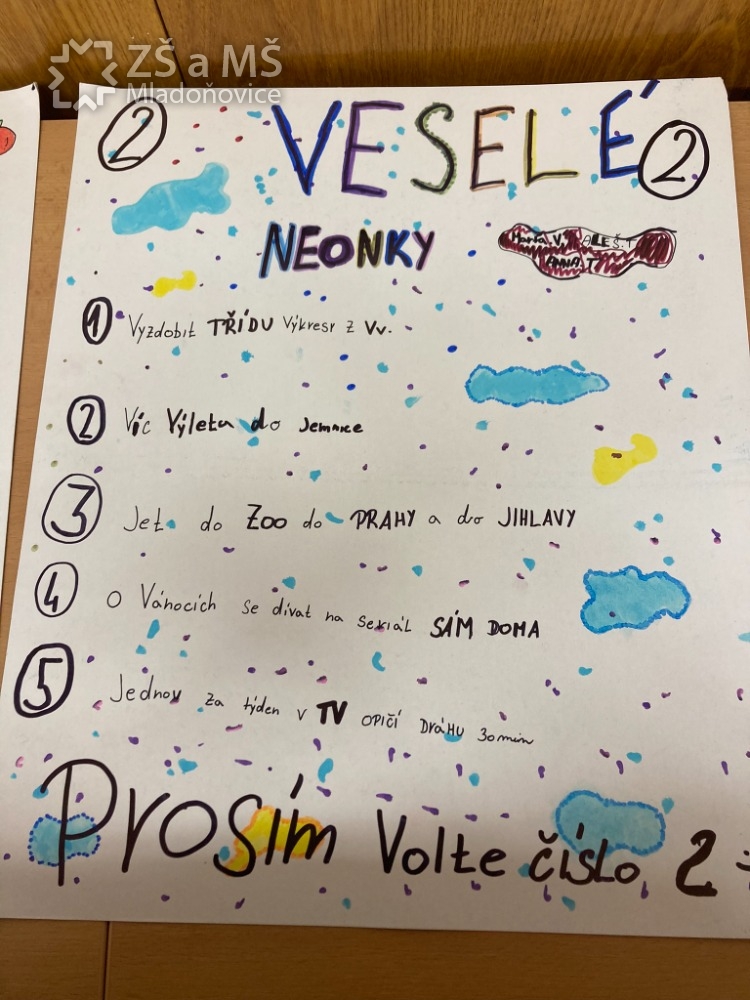 ZŠ a MŠ
Mladoňovice
2 VESELÉ 2
NEONKY
ALEŠ.T
ANNA.T
1 Vyzdobit TŘÍDU Výkresy z Vv.
2 Víc Výletů do Jemnice
3 Jet do Zoo do PRAHY a do JIHLAVY
4 O Vánocích se dívat na seriál SÁM DOMA
5 Jednou za týden v TV OPIČÍ DRÁHU 30min
Prosím Volte číslo 2